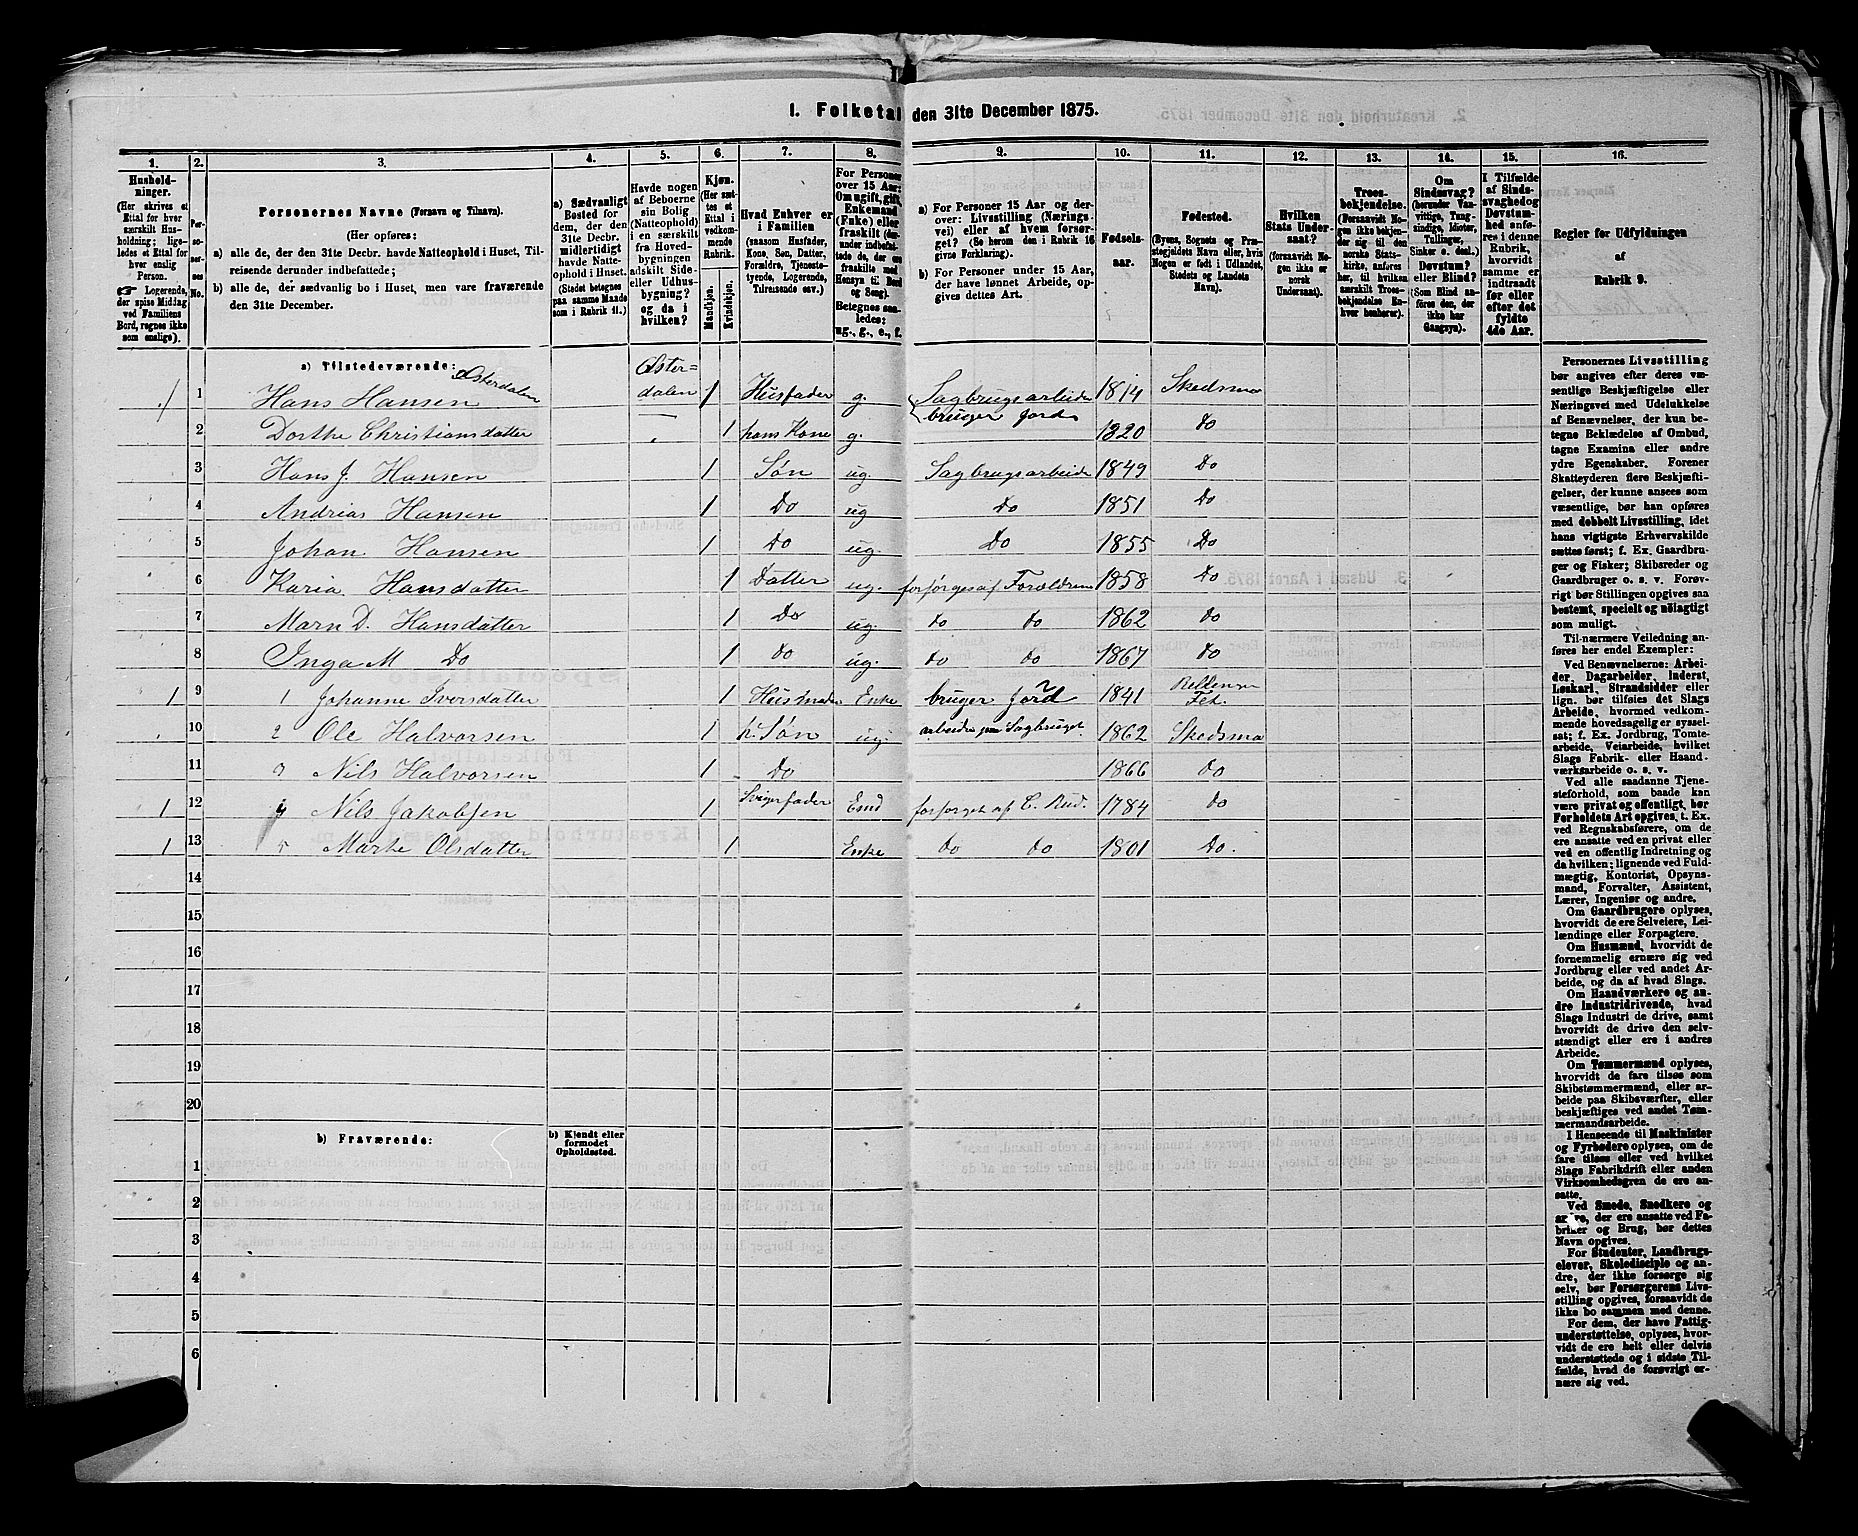 1. Folketal den 31te December 1875.
1. 2. 3. 4. 5. 6. 7. 8. 9. 10. 11. 12. 13. 14. 15. 16.
Hushold-
ninger.
(Her skrives et
Ettal for hver
særskilt Hus-
holdning; lige-
ledes et Ettal for
hver enslig
Person.
☞ Logerende,
der spise Middag
ved Familiens
Bord, regnes ikke
som enslige).
Personernes No.
Personernes Navne (Fornavn og Tilnavn).
(Her opføres:
a) alle de, der den 31te Decbr. havde Natteophold i Huset, Til-
reisende derunder indbefattede;
b) alle de, der sædvanlig bo i Huset, men vare fraværende
den 31te December.
a) Sædvanligt
Bosted for
dem, der den
31te Decbr.
midlertidigt
havde Natte-
ophold i Huset.
(Stedet betegnes
paa samme Maade
som i Rubrik 11.)
Havde nogen
af Beboerne
sin Bolig
(Natteophold)
i en særskilt
fra Hoved-
bygningen
adskilt Side-
eller Udhus-
bygning?
og da i
hvilken?
Kjøn.
(Her sæt-
tes et
Ettal i
vedkom-
mende
Rubrik.
Mandkjøn.
Kvindekjøn.
Hvad Enhver er
i Familien
(saasom Husfader,
Kone, Søn, Datter,
Forældre, Tjeneste-
tyende, Logerende,
Tilreisende osv.)
For Personer
over 15 Aar:
Om ugift, gift,
Enkemand
(Enke) eller
fraskilt (der-
under indbefat-
tede de, der ere
fraskilte med
Hensyn til Bord
og Seng).
Betegnes saa-
ledes:
ug., g., e., f.
a) For Personer 15 Aar og der-
over: Livsstilling (Nærings-
vei) eller af hvem forsør-
get? (Se herom den i Rubrik 16
givne Forklaring).
b) For Personer under 15 Aar,
der have lønnet Arbeide, op-
gives dettes Art.
Fødsels-
aar.
Fødested.
(Byens, Sognets og Præ-
stegjeldets Navn eller, hvis
Nogen er født i Udlandet,
Stedets og Landets
Navn).
Hvilken
Stats Under-
saat?
(forsaavidt No-
gen ikke er
norsk
Undersaat).
Troes-
bekjendelse.
(Forsaavidt No-
gen ikke bekjen-
der sig til den
norske Stats-
kirke, anføres
her, til hvilken
særskilt Troes-
bekjendelse En-
hver henhører).
Om
Sindssvag?
(herunder Van-
vittige, Tung-
sindige, Idioter,
Tullinger,
Sinker o. desl.)
Døvstum?
eller Blind?
(Som Blind an-
føres den, der
ikke har
Gangsyn).
I Tilfælde
af Sinds-
svaghed og
Døvstum-
hed anfø-
res i denne
Rubrik,
hvorvidt
samme er
indtraadt
før eller
efter det
fyldte
4de Aar.
Regler for Udfyldningen
af
Rubrik 9.
a) Tilstedeværende:
1 1 Hans Hansen Østerdalen Øster= dalen 1 Husfader g. Sagbrugsarbeide bruger Jord 1814 Skedsmo
2 Dorthe Christiansdatter — 1 hans Kone g. 1820 do
3 Hans J. Hansen 1 Søn ug. Sagbrugsarbeide 1849 Do
4 Andrias Hansen 1 Do ug do 1851 Do
5 Johan Hansen 1 Do ug. Do 1855 Do
6 Karia Hansdatter 1 Datter ug. forsørges af Forældrene 1858 Do
7 Marn D. Hansdatter 1 Do ug. do do 1862 do
8 Inga M Do 1 do ug. do do 1867 do
1 9 1 Johanne Iversdatter 1 Husmoder Enke bruger Jord 1841 Fet.
10 2 Ole Halvorsen 1 h. Søn ug. Sagbruget 1862 Skedsmo
11 3 Nils Halvorsen 1 Do 1866 do
1 12 4 Nils Jakobsen 1 Svigerfader Emd forsørget af 1784 do
1 13 5 Marte Olsdatter 1 Enke do do 1801 Do.
14
15
16
17
18
19
20
b) Fraværende:
b) Kjendt eller
formodet
Opholdssted.
1
2
3
4
5
6
Personernes Livsstilling
bør angives efter deres væ-
sentlige Beskjæftigelse eller
Næringsvei med Udelukkelse
af Benævnelser, der kun be-
tegne Beklædelse af Ombud,
tagne Examina eller andre
ydre Egenskaber. Forener
Skatteyderen flere Beskjæfti-
gelser, der kunne ansees som
væsentlige, bør han opføres
med dobbelt Livsstilling, idet
hans vigtigste Erhvervskilde
sættes først; f. Ex. Gaardbru-
ger og Fisker; Skibsreder og
Gaardbruger o. s. v. Forøv-
rigt bør Stillingen opgives saa
bestemt, specielt og nøiagtigt
som muligt.
Til nærmere Veiledning an-
føres her endel Exempler:
Ved Benævnelserne: Arbei-
der, Dagarbeider, Inderst,
Løskarl, Strandsidder eller
lign. bør tilføies det Slags
Arbeide, hvormed vedkom-
mende hovedsagelig er syssel-
sat; f. Ex. Jordbrug, Tomte-
arbeide, Veiarbeide, hvilket
Slags Fabrik- eller Haand-
værksarbeide o. s. v.
Ved alle saadanne Tjene-
steforhold, som baade kan
være privat og offentligt, bør
Forholdets Art opgives, t. Ex.
ved Regnskabsførere, om de
ere ansatte ved en privat eller
ved en offentlig Indretning og
da hvilken; lignende ved Fuld-
mægtig, Kontorist, Opsyns-
mand, Forvalter, Assistent,
Lærer, Ingeniør og andre.
Om Gaardbrugere oplyses,
hvorvidt de ere Selveiere, Lei-
lændinge eller Forpagtere.
Om Husmænd, hvorvidt de
fornemmelig ernære sig ved
Jordbrug eller ved andet Ar-
beide, og da af hvad Slags.
Om Haandværkere og an-
dre Industridrivende, hvad
Slags Industri de drive, samt
hvorvidt de drive den selv-
stændigt eller ere i andres
Arbeide.
Om Tømmermænd oplyses,
hvorvidt de fare tilsøs som
Skibstømmermænd, eller ar-
beide paa Skibsværfter, eller
beskjæftiges ved andet Tøm-
mermandsarbeide.
I Henseende til Maskinister
og Fyrbødere oplyses, om de
fare tilsøs eller ved hvilket
Slags Fabrikdrift eller anden
Virksomhedsgren de ere an-
satte.
Ved Smede, Snedkere og
andre, der ere ansatte ved Fa-
briker og Brug, bør dettes
Navn opgives.
For Studenter, Landbrugs-
elever, Skoledisciple og an-
dre, der ikke forsørge sig
selv, bør Forsørgerens Livs-
stilling opgives, forsaavidt de
ikke bo sammen med denne.
For dem, der have Fattig-
understøttelse, oplyses, hvor-
vidt de ere helt eller delvis
understøttede og i sidste Til-
fælde, hvad de forøvrigt er-
nære sig ved.